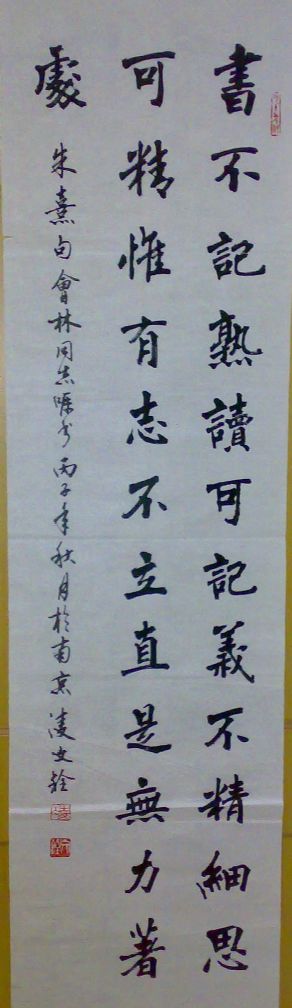 書不記熟讀可記義不精細思
可精惟有志不立直是無力著
處
朱熹句會林同志囑書丙子年秋月於南京凌文銓